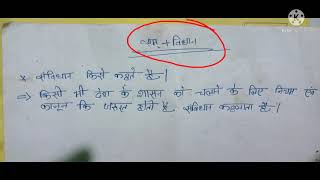 सम् + विधान
* संविधान किसे कहते है।
⇒ किसी भी देश के शासन को चलाने के लिए नियम एवं
कानून कि जरूरत होती है संविधान कहलाता है।